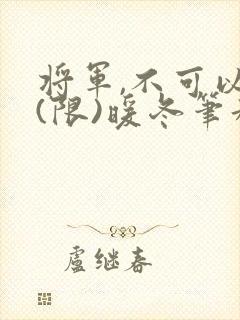 将軍,不可以
(限)暖冬筆
盧继春